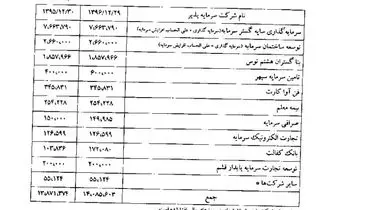 نام شرکت سرمایه پذیر ۱۳۹۶/۱۲/۲۹ ۱۳۹۵/۱۲/۳۰
سرمایه‌گذاری سایه گستر سرمایه (سرمایه گذاری - علی الحساب افزایش سرمایه) ۷،۶۶۳،۷۹۰ ۷،۶۶۳،۷۹۰
توسعه ساختمان سرمایه (سرمایه گذاری - علی الحساب افزایش سرمایه) ۲،۶۶۰،۰۰۰ ۲،۶۶۰،۰۰۰
بنا گستران هشتم توس ۱،۸۵۷،۹۶۶ ۱،۸۵۷،۹۶۶
تامین سرمایه سپهر ۶۰۰،۰۰۰ ۴۰۰،۰۰۰
فن آوا کارت ۳۴۵،۸۳۱ ۳۴۵،۸۳۱
بیمه معلم ۲۵۴،۲۲۸ ۲۵۴،۲۲۸
صرافی سرمایه ۱۴۹،۹۸۵ ۱۵۰،۰۰۰
تجارت الکترونیک سرمایه ۱۲۶،۵۹۹ ۱۲۶،۵۹۹
بانک کفالت ۱۷۲،۰۸۰ ۱۰۳،۸۳۶
توسعه تجارت سرمایه پایدار قشم ۲۰۰،۰۰۰ ۲۰۰،۰۰۰
سایر شرکت‌ها * ۵۵،۱۲۴ ۵۵،۱۲۴
جمع ۱۴،۰۸۵،۶۰۳ ۱۳،۸۷۱،۳۷۴